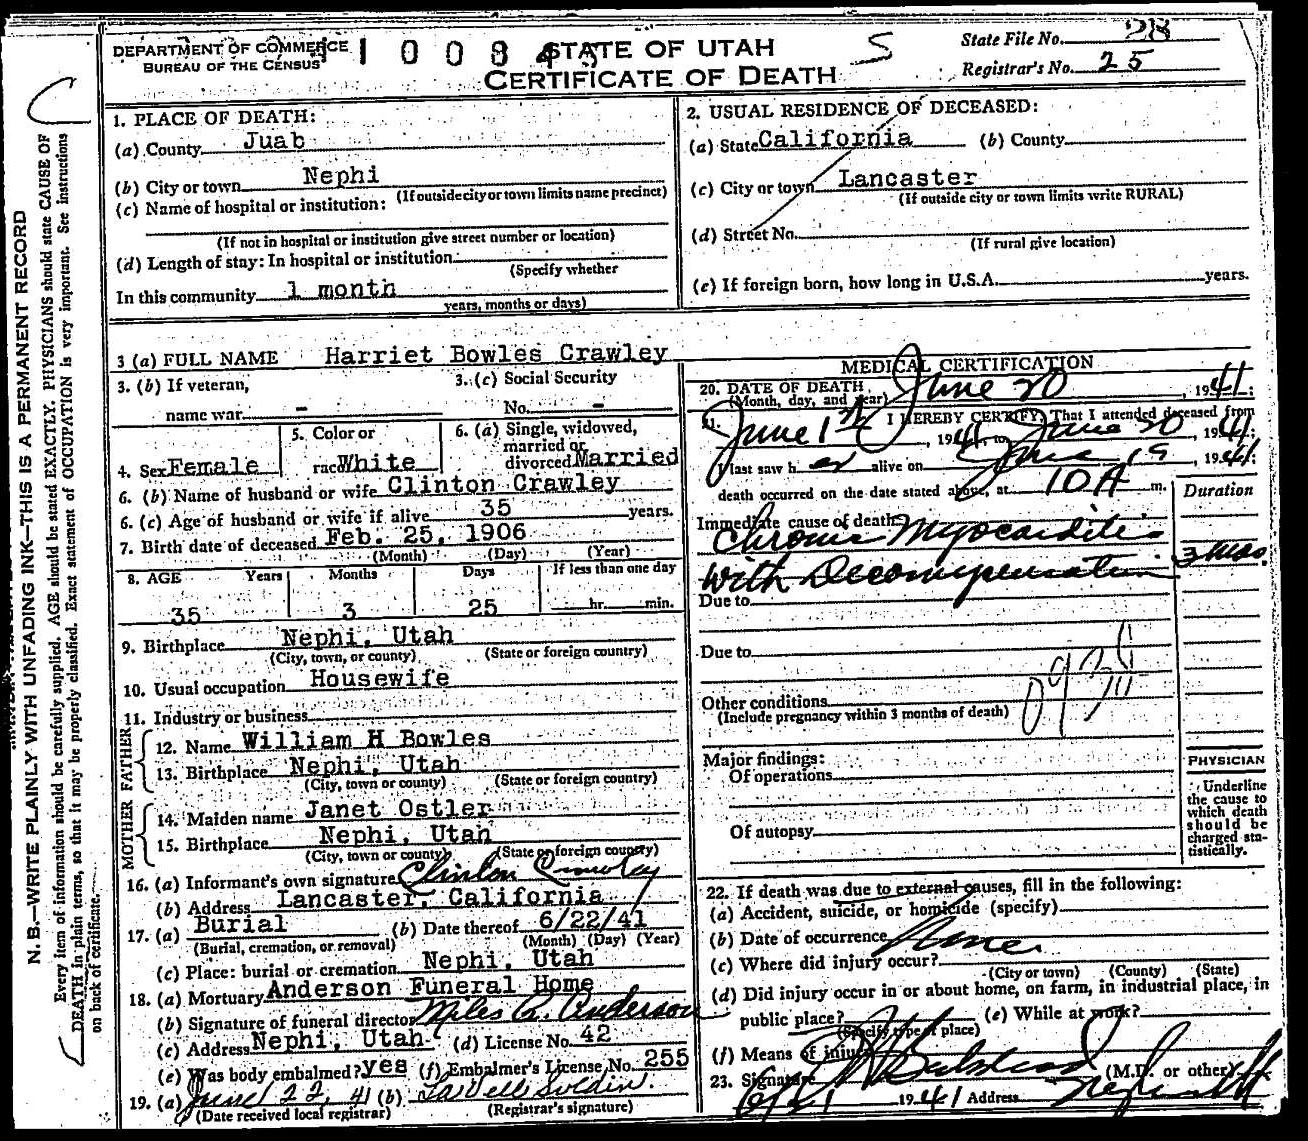 DEPARTMENT OF COMMERCE
BUREAU OF THE CENSUS
STATE OF UTAH
CERTIFICATE OF DEATH
S
State File No. 28
Registrar's No. 25
1. PLACE OF DEATH:
(a) County Juab
(b) City or town Nephi
(If outside city or town limits name precinct)
(c) Name of hospital or institution:
(If not in hospital or institution give street number or location)
(d) Length of stay: In hospital or institution
(Specify whether
In this community 1 month
years, months or days)
2. USUAL RESIDENCE OF DECEASED:
(a) State California (b) County
(c) City or town Lancaster
(If outside city or town limits write RURAL)
(d) Street No.
(If rural give location)
(e) If foreign born, how long in U.S.A. years.
3 (a) FULL NAME Harriet Bowles Crawley
3. (b) If veteran,
name war -
3. (c) Social Security
No. -
4. Sex Female
5. Color or
race White
6. (a) Single, widowed,
married or
divorced Married
6. (b) Name of husband or wife Clinton Crawley
6. (c) Age of husband or wife if alive 35 years.
7. Birth date of deceased Feb. 25, 1906
(Month) (Day) (Year)
8. AGE Years Months Days If less than one day
35 3 25 hr. min.
9. Birthplace Nephi, Utah
(City, town, or county) (State or foreign country)
10. Usual occupation Housewife
11. Industry or business
FATHER
12. Name William H Bowles
13. Birthplace Nephi, Utah
(City, town or county) (State or foreign country)
MOTHER
14. Maiden name Janet Ostler
15. Birthplace Nephi, Utah
(City, town or county) (State or foreign country)
16. (a) Informant's own signature Clinton Crawley
(b) Address Lancaster, California
17. (a) Burial (b) Date thereof 6/22/41
(Burial, cremation, or removal) (Month) (Day) (Year)
(c) Place: burial or cremation Nephi, Utah
18. (a) Mortuary Anderson Funeral Home
(b) Signature of funeral director Miles A. Anderson
(c) Address Nephi, Utah (d) License No. 42
(e) Was body embalmed? yes (f) Embalmer's License, No. 255
19. (a) June 22, 41 (b)
(Date received local registrar) (Registrar's signature)
MEDICAL CERTIFICATION
20. DATE OF DEATH June 20, 1941;
(Month, day, and year)
21. I HEREBY CERTIFY, That I attended deceased from
June 1st, 1941, to June 20, 1941;
I last saw her alive on June 19, 1941;
death occurred on the date stated above, at 10 A m.
Duration
Immediate cause of death
Chronic Myocarditis
with Decompensation 3 mos.
Due to
Due to
Other conditions
(Include pregnancy within 3 months of death)
Major findings:
Of operations
Of autopsy
PHYSICIAN
Underline
the cause to
which death
should be
charged sta-
tistically.
22. If death was due to external causes, fill in the following:
(a) Accident, suicide, or homicide (specify)
(b) Date of occurrence None
(c) Where did injury occur?
(City or town) (County) (State)
(d) Did injury occur in or about home, on farm, in industrial place, in
public place? (e) While at work?
(Specify type of place)
(f) Means of injury
23. Signature (M.D. or other)
6/21 1941 Address Nephi
N. B.—WRITE PLAINLY WITH UNFADING INK—THIS IS A PERMANENT RECORD
Every item of information should be carefully supplied. AGE should be stated EXACTLY. PHYSICIANS should state CAUSE OF
DEATH in plain terms, so that it may be properly classified. Exact statement of OCCUPATION is very important. See instructions
on back of certificate.